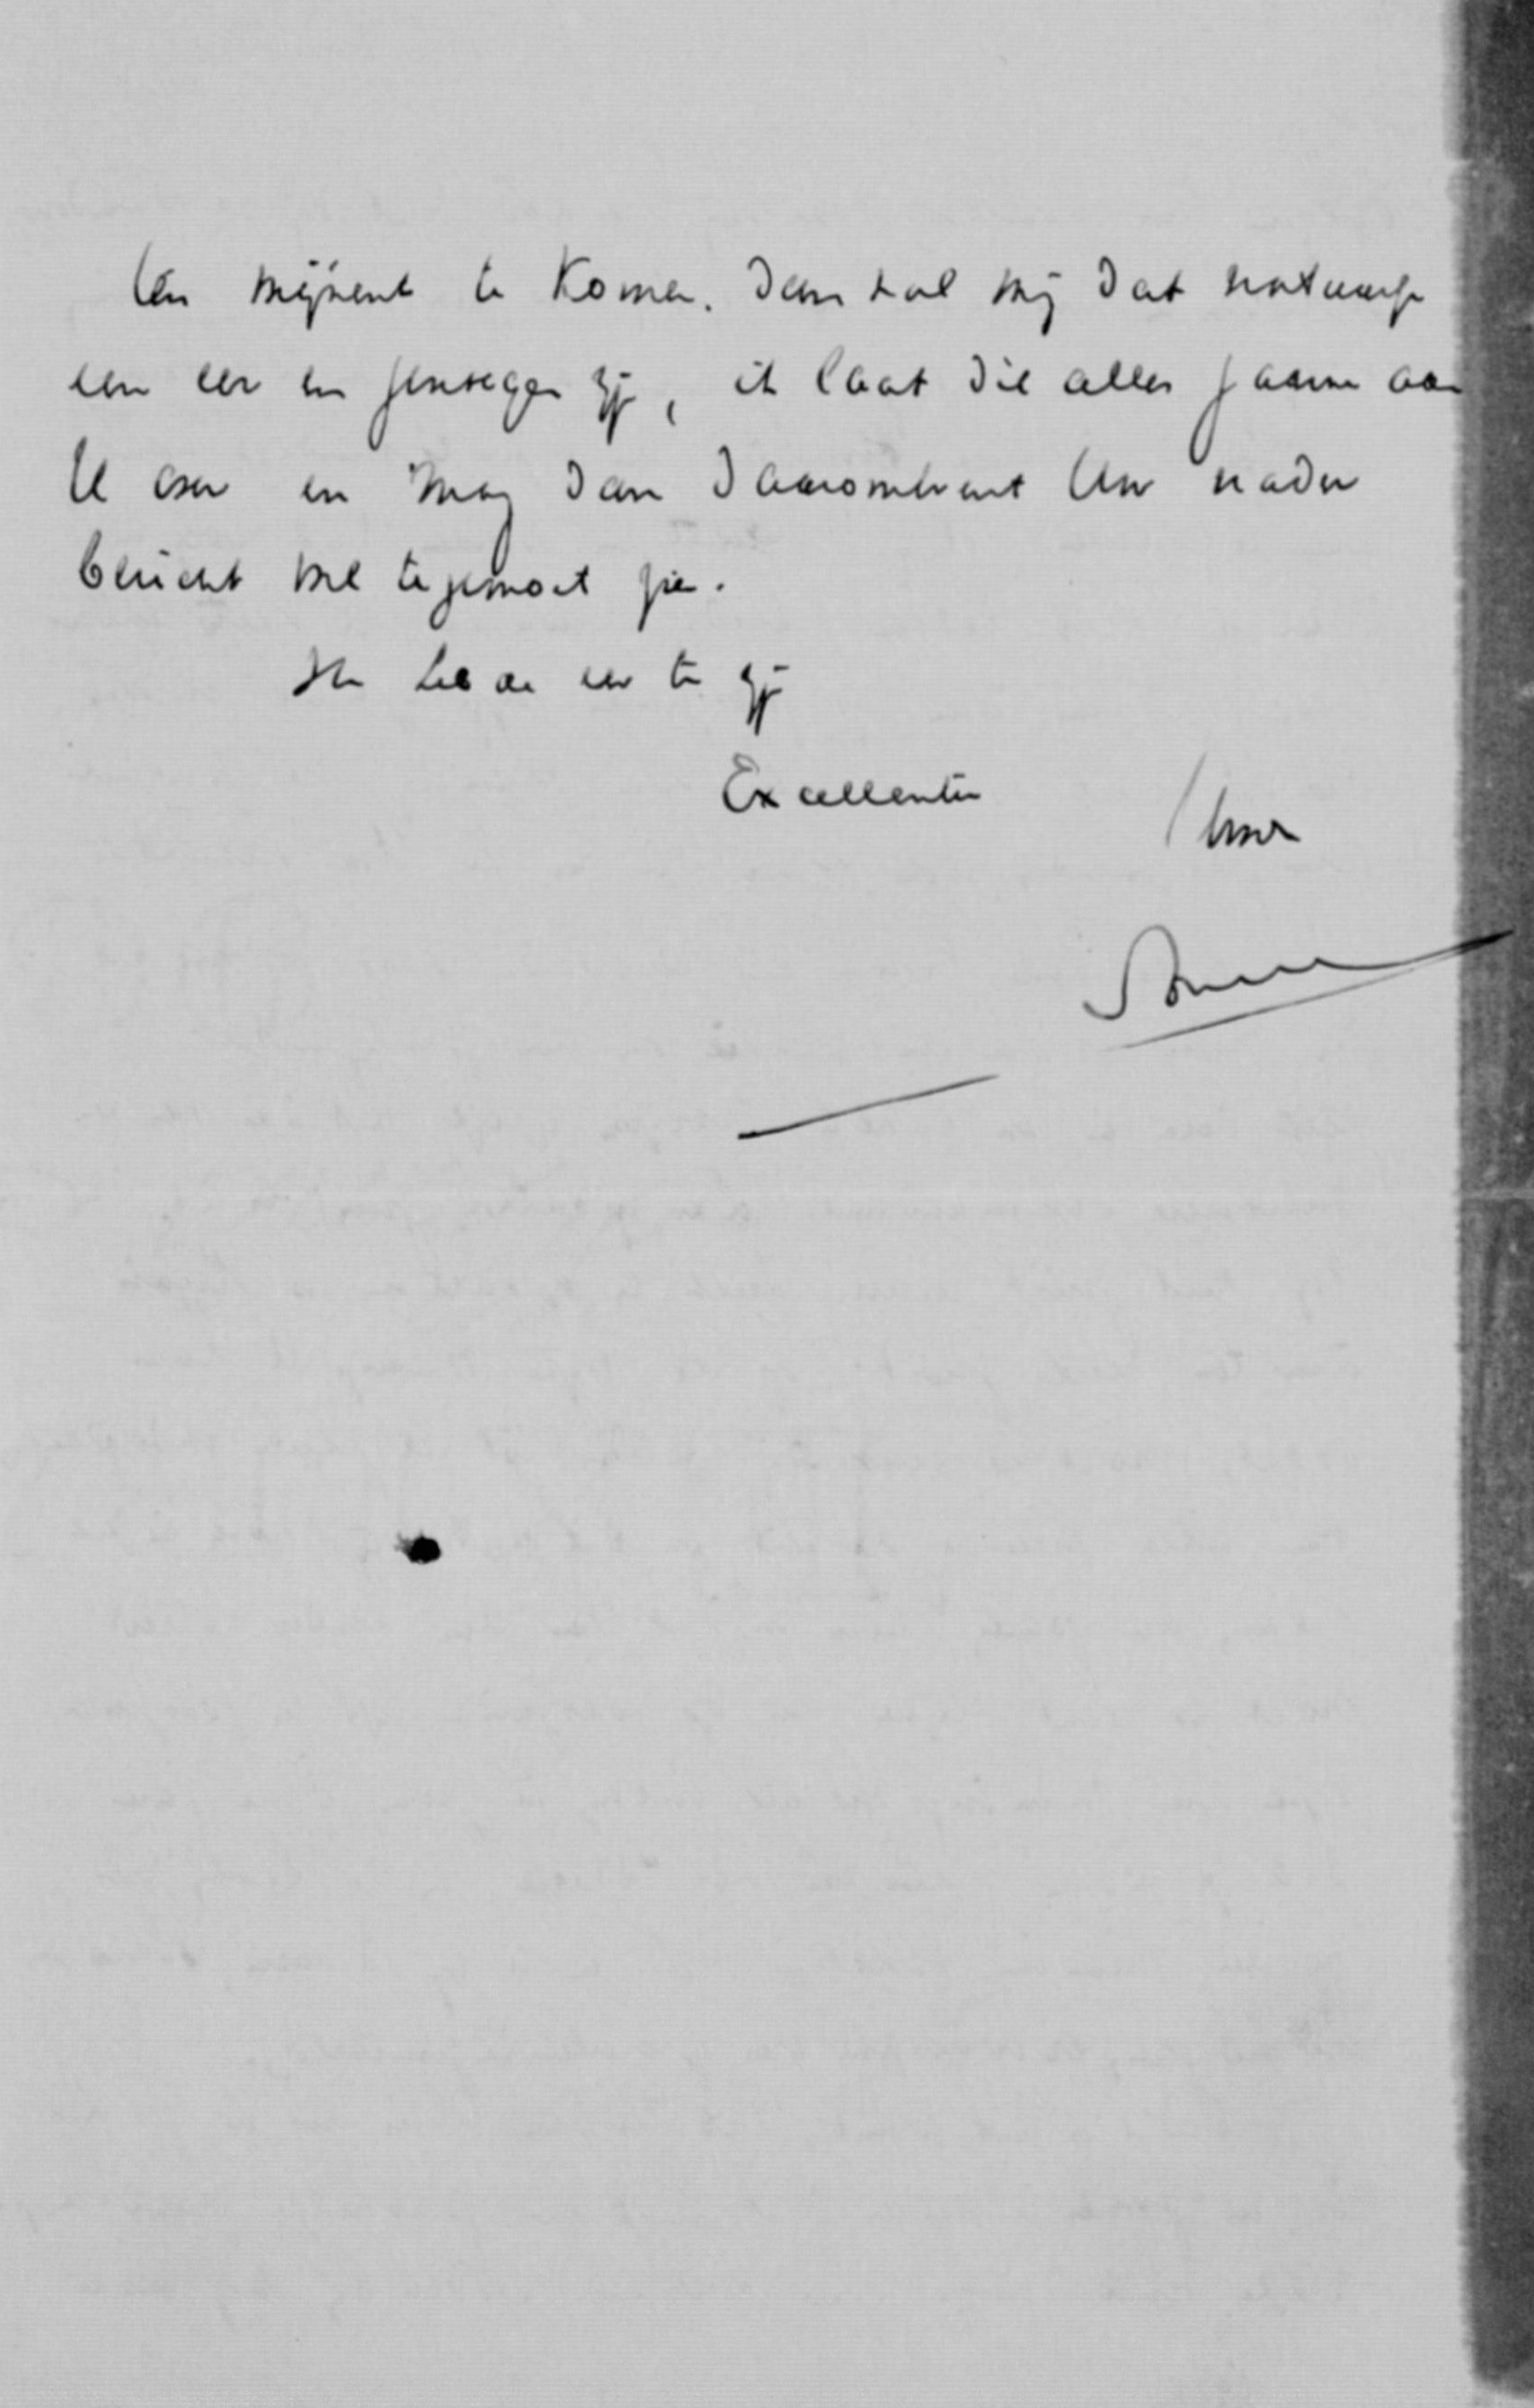 ten mijnent te komen. Dan zal mij dat natuurlijk
een eer en genoegen zijn, ik laat die alles gaarne aan
U over en mag dan daaromtrent Uw nader
bericht wel tegemoet zien.
Ik heb de eer te zijn
Excellentie
Uwe